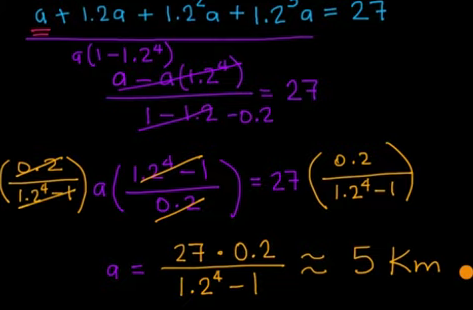 a + 1.2a + 1.2²a + 1.2³a = 27
a(1-1.2⁴)
a - a(1.2⁴) / 1 - 1.2 -0.2 = 27
(0.2 / 1.2⁴-1) a (1.2⁴-1 / 0.2) = 27 (0.2 / 1.2⁴-1)
a = 27 · 0.2 / 1.2⁴-1 ≈ 5 Km